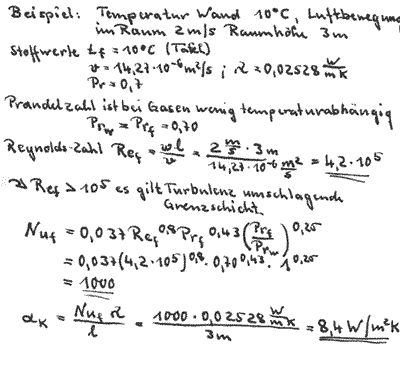 Beispiel: Temperatur Wand 10°C, Luftbewegung
im Raum 2 m/s Raumhöhe 3m
Stoffwerte tf = 10°C (Tafel)
ν = 14,27·10⁻⁶ m²/s ; λ = 0,02528 W/mK
Pr = 0,7
Prandelzahl ist bei Gasen wenig temperaturabhängig
Prw = Prf = 0,70
Reynolds-Zahl Ref = wl/ν = 2 m/s · 3m / 14,27·10⁻⁶ m²/s = 4,2·10⁵
⇒ Ref > 10⁵ es gilt Turbulenz umschlagende
Grenzschicht
Nuf = 0,037 Ref^0,8 Prf^0,43 (Prf/Prw)^0,25
= 0,037(4,2·10⁵)^0,8 · 0,70^0,43 · 1^0,25
= 1000
αK = Nuf λ / l = 1000 · 0,02528 W/mK / 3m = 8,4 W/m²K